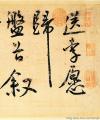 送李愿
歸
盤谷叙